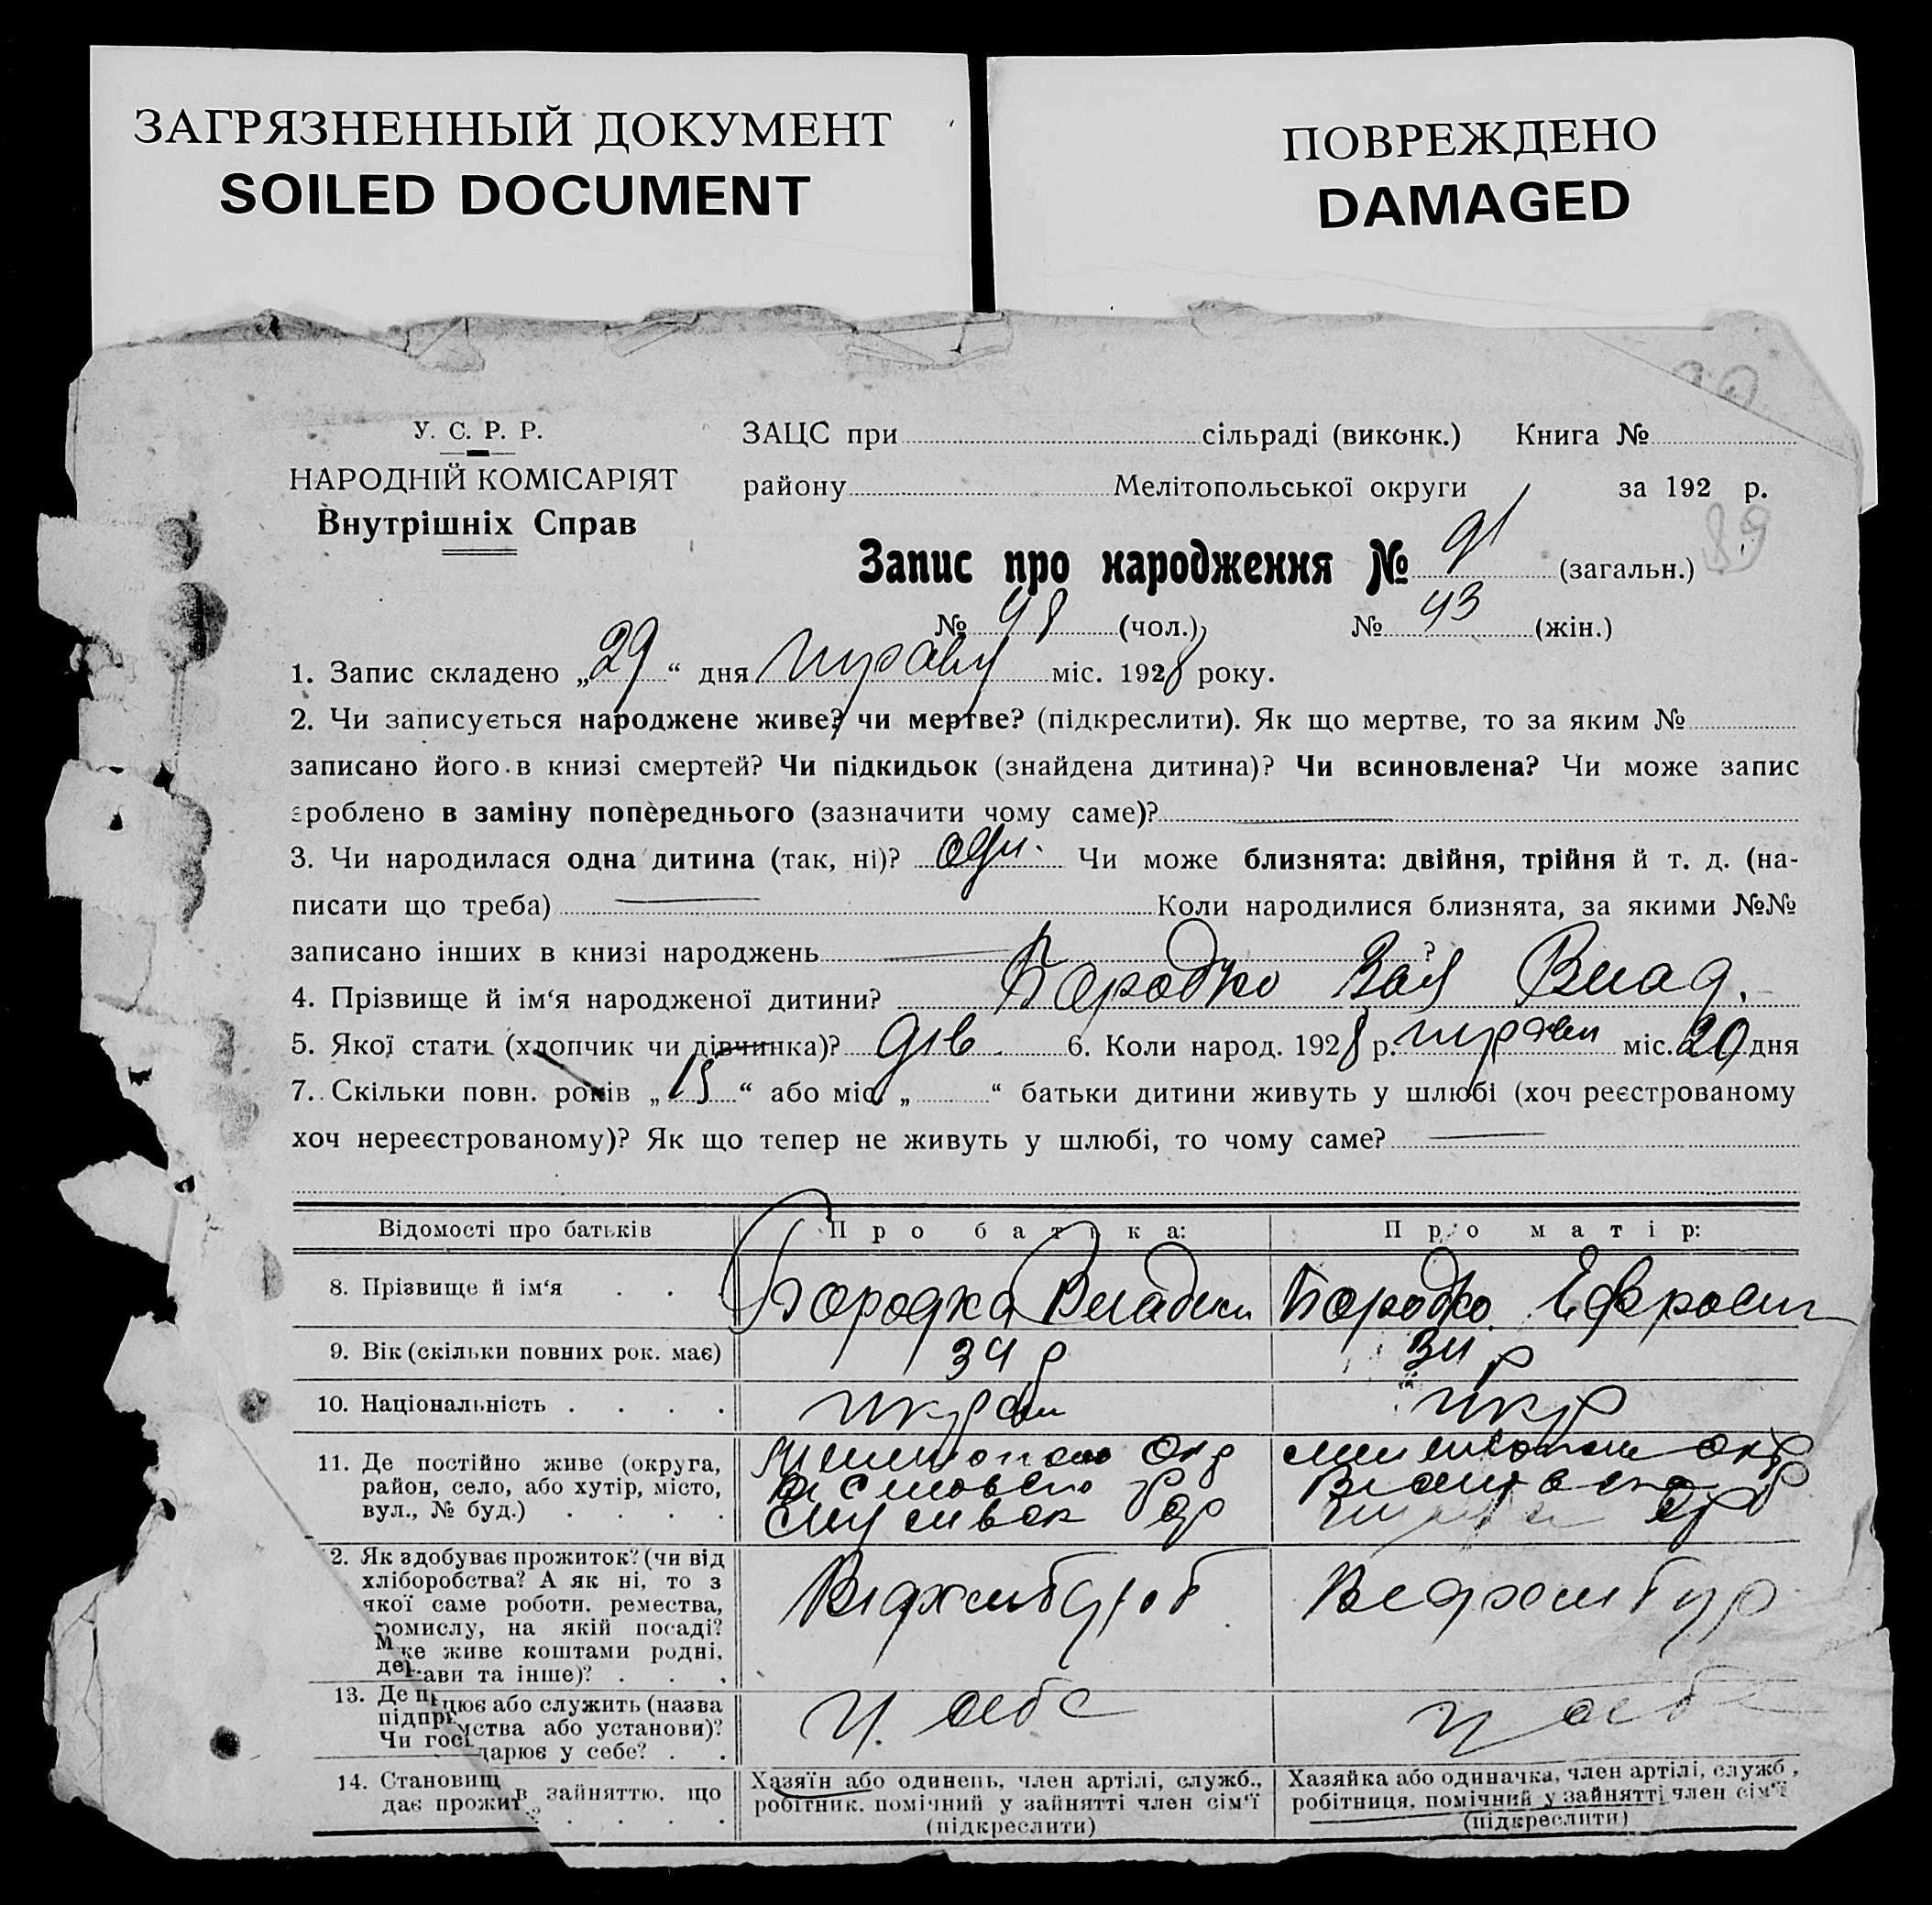 ЗАГРЯЗНЕННЫЙ ДОКУМЕНТ
SOILED DOCUMENT
ПОВРЕЖДЕНО
DAMAGED
У. С. Р. Р.
НАРОДНІЙ КОМІСАРІЯТ
Внутрішніх Справ
ЗАЦС при сільраді (виконк.) Книга №
району Мелітопольської округи за 192 р.
89
Запис про народження № 91 (загальн.)
№ 48 (чол.) № 43 (жін.)
1. Запис складено „29“ дня травн міс. 1928 року.
2. Чи записується народжене живе? чи мертве? (підкреслити). Як що мертве, то за яким №
записано його в книзі смертей? Чи підкидьок (знайдена дитина)? Чи всиновлена? Чи може запис
зроблено в заміну попереднього (зазначити чому саме)?
3. Чи народилася одна дитина (так, ні)? одн. Чи може близнята: двійня, трійня й т. д. (на-
писати що треба) Коли народилися близнята, за якими №№
записано інших в книзі народжень
4. Прізвище й ім‘я народженої дитини? Бородко Влад.
5. Якої стати (хлопчик чи дівчинка)? дів. 6. Коли народ. 1928 р. травн міс. 20 дня
7. Скільки повн. років „15“ або міс. „ “ батьки дитини живуть у шлюбі (хоч реєстрованому
хоч нереєстрованому)? Як що тепер не живуть у шлюбі, то чому саме?
Відомості про батьків Про батька: Про матір:
8. Прізвище й ім‘я . . . Бородка Бородко Ефросин
9. Вік (скільки повних рок. має) 34 р 34 р
10. Національність . . . . укр
11. Де постійно живе (округа,
район, село, або хутір, місто,
вул., № буд.) . . . .
окр
окр
2. Як здобуває прожиток? (чи від
хліборобства? А як ні, то з
якої саме роботи, ремества,
ромислу, на якій посаді?
М ке живе коштами родні,
дер ави та інше)? . . .
13. Де пр цює або служить (назва
підпри мства або установи)?
Чи госп дарює у себе? . .
у себе
у себе
14. Становищ в зайняттю, що
дає прожит . . . .
Хазяїн або одинець, член артілі, служб.,
робітник, помічний у зайнятті член сім‘ї
(підкреслити)
Хазяйка або одиначка, член артілі, служб.,
робітниця, помічний у зайнятті член сім‘ї
(підкреслити)